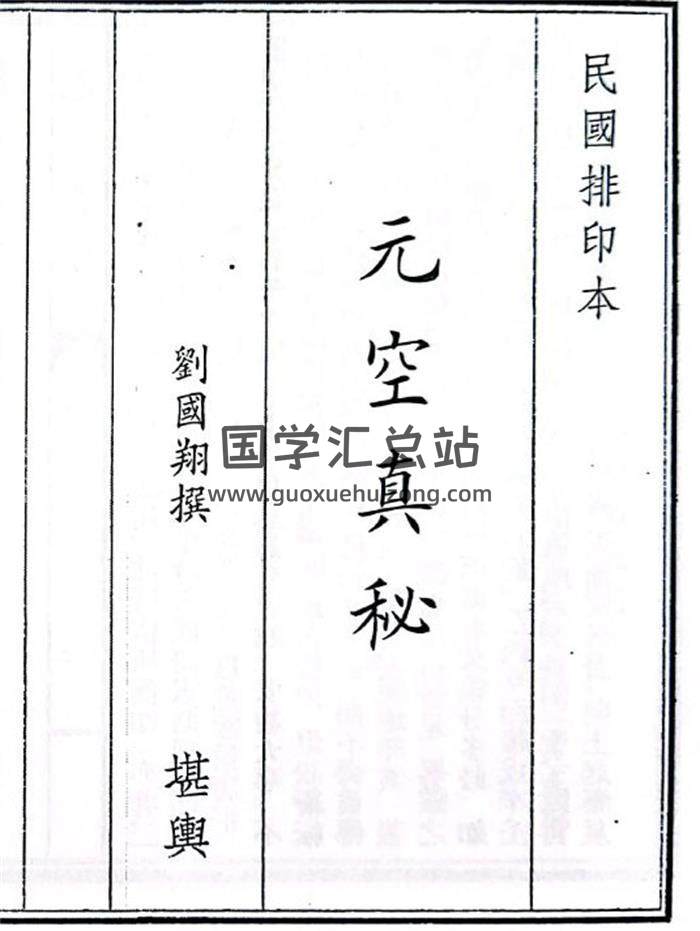 民國排印本
元空真秘
劉國翔撰
堪輿
国学汇总站
www.guoxuehuizong.com